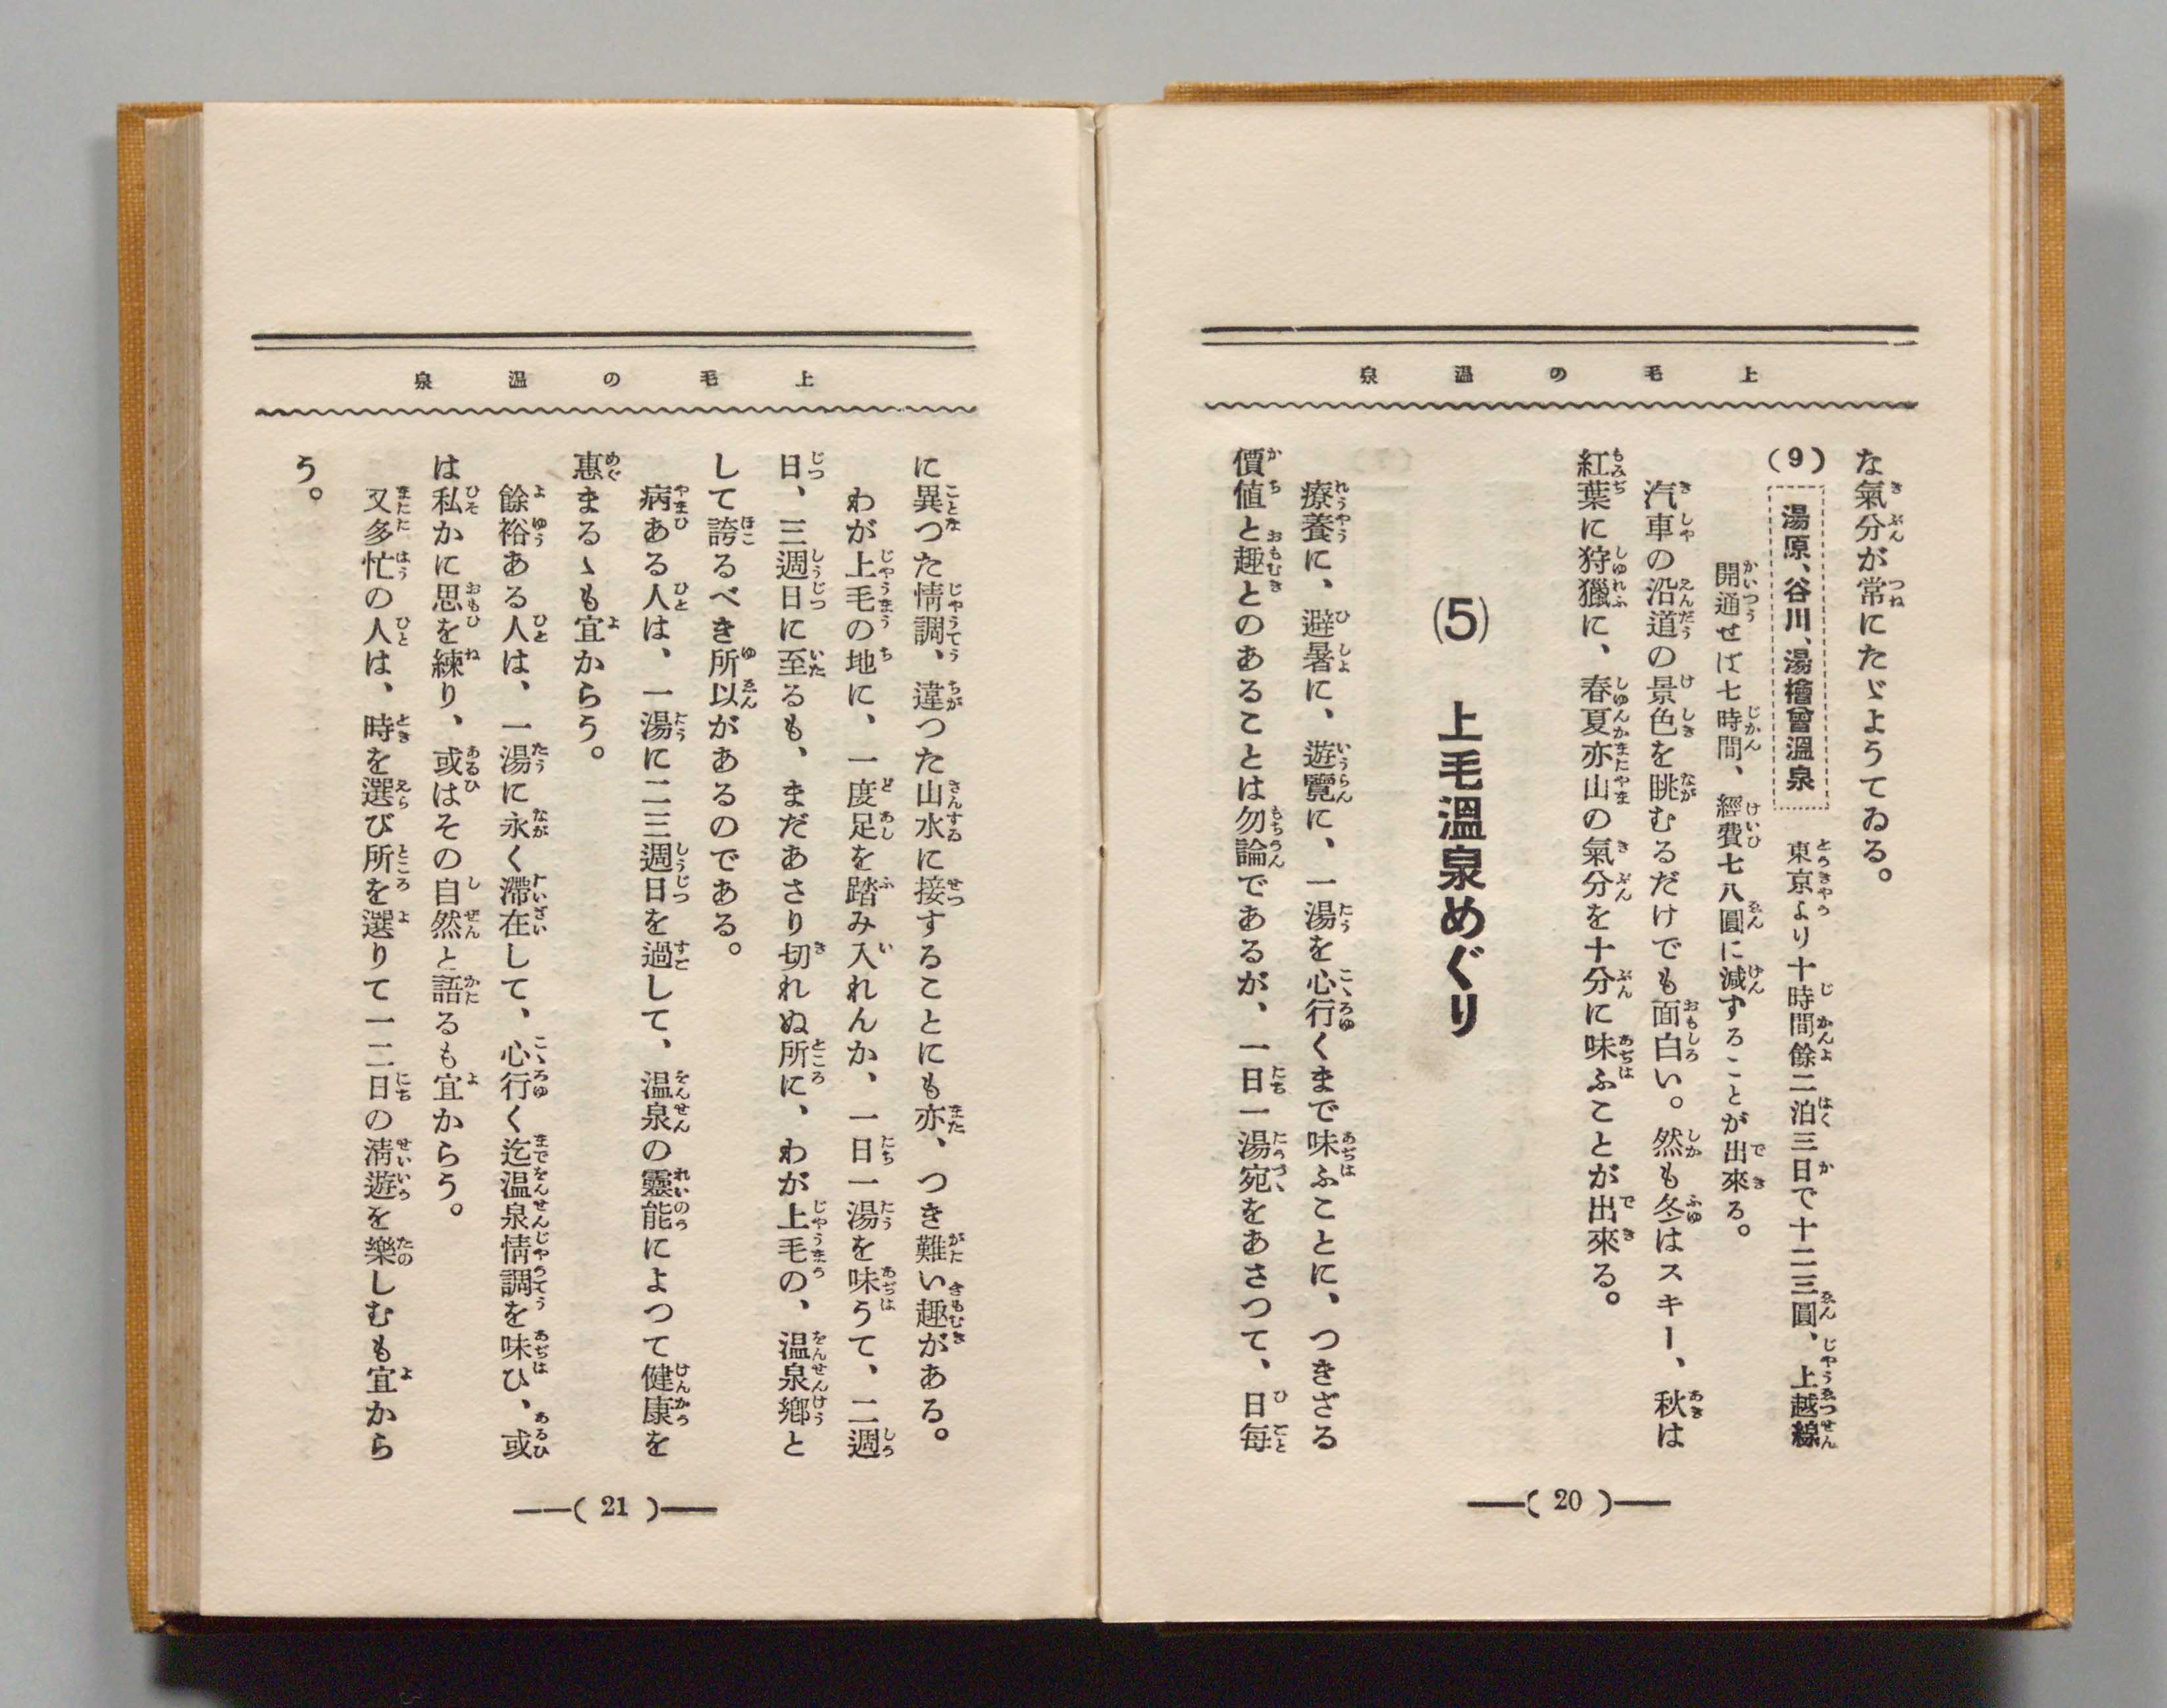 上毛の温泉
な氣分が常にたゞようてゐる。
(9) 湯原、谷川、湯檜曾溫泉 東京より十時間餘二泊三日で十二三圓、上越線
開通せば七時間、經費七八圓に減ずることが出來る。
汽車の沿道の景色を眺むるだけでも面白い。然も冬はスキー、秋は
紅葉に狩獵に、春夏亦山の氣分を十分に味ふことが出來る。
(5) 上毛溫泉めぐり
療養に、避暑に、遊覽に、一湯を心行くまで味ふことに、つきざる
價値と趣とのあることは勿論であるが、一日一湯宛をあさつて、日每
(20)
上毛の温泉
に異つた情調、違つた山水に接することにも亦、つき難い趣がある。
わが上毛の地に、一度足を踏み入れんか、一日一湯を味うて、二週
日、三週日に至るも、まだあさり切れぬ所に、わが上毛の、温泉鄕と
して誇るべき所以があるのである。
病ある人は、一湯に二三週日を過して、温泉の靈能によつて健康を
惠まるゝも宜からう。
餘裕ある人は、一湯に永く滯在して、心行く迄温泉情調を味ひ、或
は私かに思を練り、或はその自然と語るも宜からう。
又多忙の人は、時を選び所を選りて一二日の淸遊を樂しむも宜から
う。
(21)